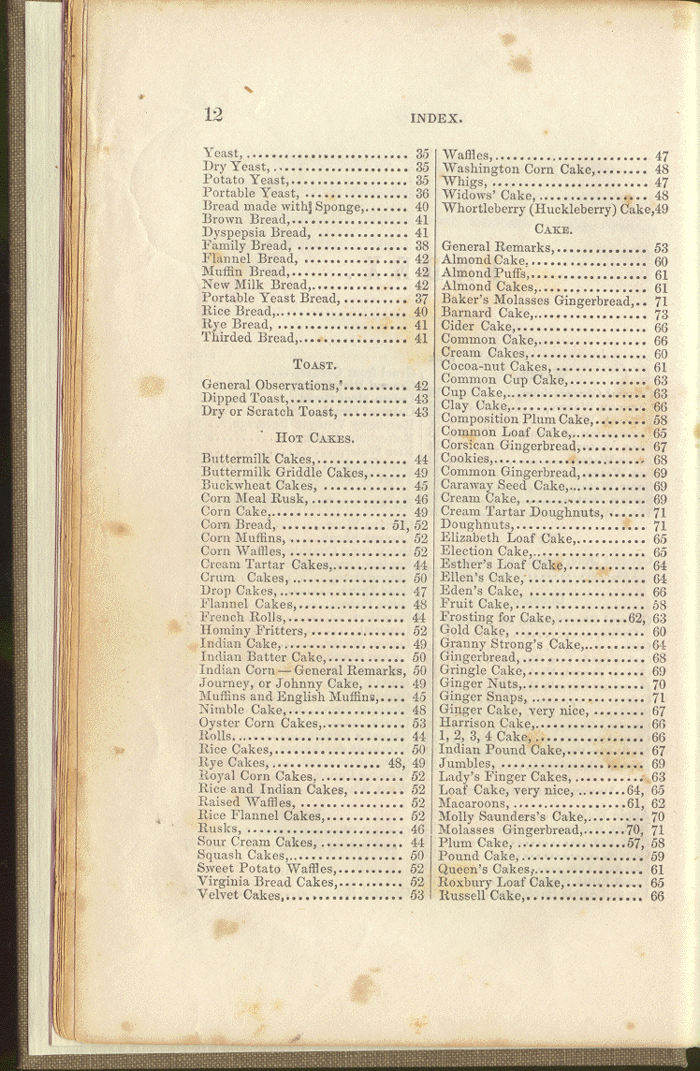 12
INDEX.
Yeast, 35
Dry Yeast, 35
Potato Yeast, 35
Portable Yeast, 36
Bread made with Sponge, 40
Brown Bread, 41
Dyspepsia Bread, 41
Family Bread, 38
Flannel Bread, 42
Muffin Bread, 42
New Milk Bread, 42
Portable Yeast Bread, 37
Rice Bread, 40
Rye Bread, 41
Thirded Bread, 41
TOAST.
General Observations, 42
Dipped Toast, 43
Dry or Scratch Toast, 43
HOT CAKES.
Buttermilk Cakes, 44
Buttermilk Griddle Cakes, 49
Buckwheat Cakes, 45
Corn Meal Rusk, 46
Corn Cake, 49
Corn Bread, 51, 52
Corn Muffins, 52
Corn Waffles, 52
Cream Tartar Cakes, 44
Crum Cakes, 50
Drop Cakes, 47
Flannel Cakes, 48
French Rolls, 44
Hominy Fritters, 52
Indian Cake, 49
Indian Batter Cake, 50
Indian Corn—General Remarks, 50
Journey, or Johnny Cake, 49
Muffins and English Muffins, 45
Nimble Cake, 48
Oyster Corn Cakes, 53
Rolls, 44
Rice Cakes, 50
Rye Cakes, 48, 49
Royal Corn Cakes, 52
Rice and Indian Cakes, 52
Raised Waffles, 52
Rice Flannel Cakes, 52
Rusks, 46
Sour Cream Cakes, 44
Squash Cakes, 50
Sweet Potato Waffles, 52
Virginia Bread Cakes, 52
Velvet Cakes, 53
Waffles, 47
Washington Corn Cake, 48
Whigs, 47
Widows' Cake, 48
Whortleberry (Huckleberry) Cake, 49
CAKE.
General Remarks, 53
Almond Cake, 60
Almond Puffs, 61
Almond Cakes, 61
Baker's Molasses Gingerbread, 71
Barnard Cake, 73
Cider Cake, 66
Common Cake, 66
Cream Cakes, 60
Cocoa-nut Cakes, 61
Common Cup Cake, 63
Cup Cake, 63
Clay Cake, 66
Composition Plum Cake, 58
Common Loaf Cake, 65
Corsican Gingerbread, 67
Cookies, 68
Common Gingerbread, 69
Caraway Seed Cake, 69
Cream Cake, 69
Cream Tartar Doughnuts, 71
Doughnuts, 71
Elizabeth Loaf Cake, 65
Election Cake, 65
Esther's Loaf Cake, 64
Ellen's Cake, 64
Eden's Cake, 66
Fruit Cake, 58
Frosting for Cake, 62, 63
Gold Cake, 60
Granny Strong's Cake, 64
Gingerbread, 68
Gringle Cake, 69
Ginger Nuts, 70
Ginger Snaps, 71
Ginger Cake, very nice, 67
Harrison Cake, 66
1, 2, 3, 4 Cake, 66
Indian Pound Cake, 67
Jumbles, 69
Lady's Finger Cakes, 63
Loaf Cake, very nice, 64, 65
Macaroons, 61, 62
Molly Saunders's Cake, 70
Molasses Gingerbread, 70, 71
Plum Cake, 57, 58
Pound Cake, 59
Queen's Cakes, 61
Roxbury Loaf Cake, 65
Russell Cake, 66